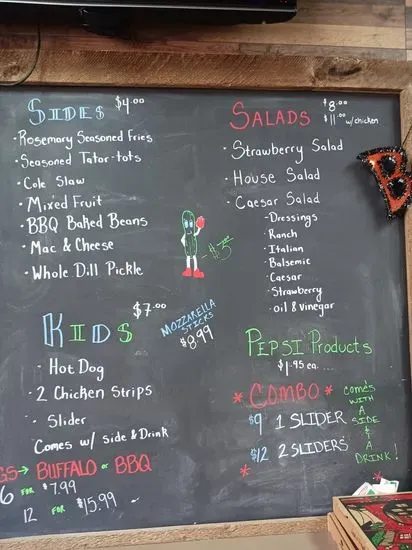 SIDES $4.00
• Rosemary Seasoned Fries
• Seasoned Tator-tots
• Cole Slaw
• Mixed Fruit
• BBQ Baked Beans
• Mac & Cheese
• Whole Dill Pickle
- $3
KIDS $7.00
• Hot Dog
• 2 Chicken Strips
• Slider
Comes w/ side & Drink
MOZZARELLA
STICKS
$8.99
GS → BUFFALO or BBQ
6 FOR $7.99
12 FOR $15.99
SALADS $8.00
$11.00 w/chicken
• Strawberry Salad
• House Salad
• Caesar Salad
• Dressings
• Ranch
• Italian
• Balsemic
• Caesar
• Strawberry
• oil & vinegar
PEPSI Products
$1.95 ea.
* COMBO *
$9 1 SLIDER
$12 2 SLIDERS
*
COMES
WITH
A
SIDE
&
A
DRINK!